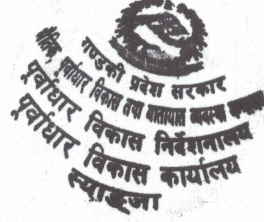 गण्डकी प्रदेश सरकार
भौतिक पूर्वाधार विकास तथा यातायात व्यवस्था
पूर्वाधार विकास निर्देशनालय
पूर्वाधार विकास कार्यालय
स्याङ्जा